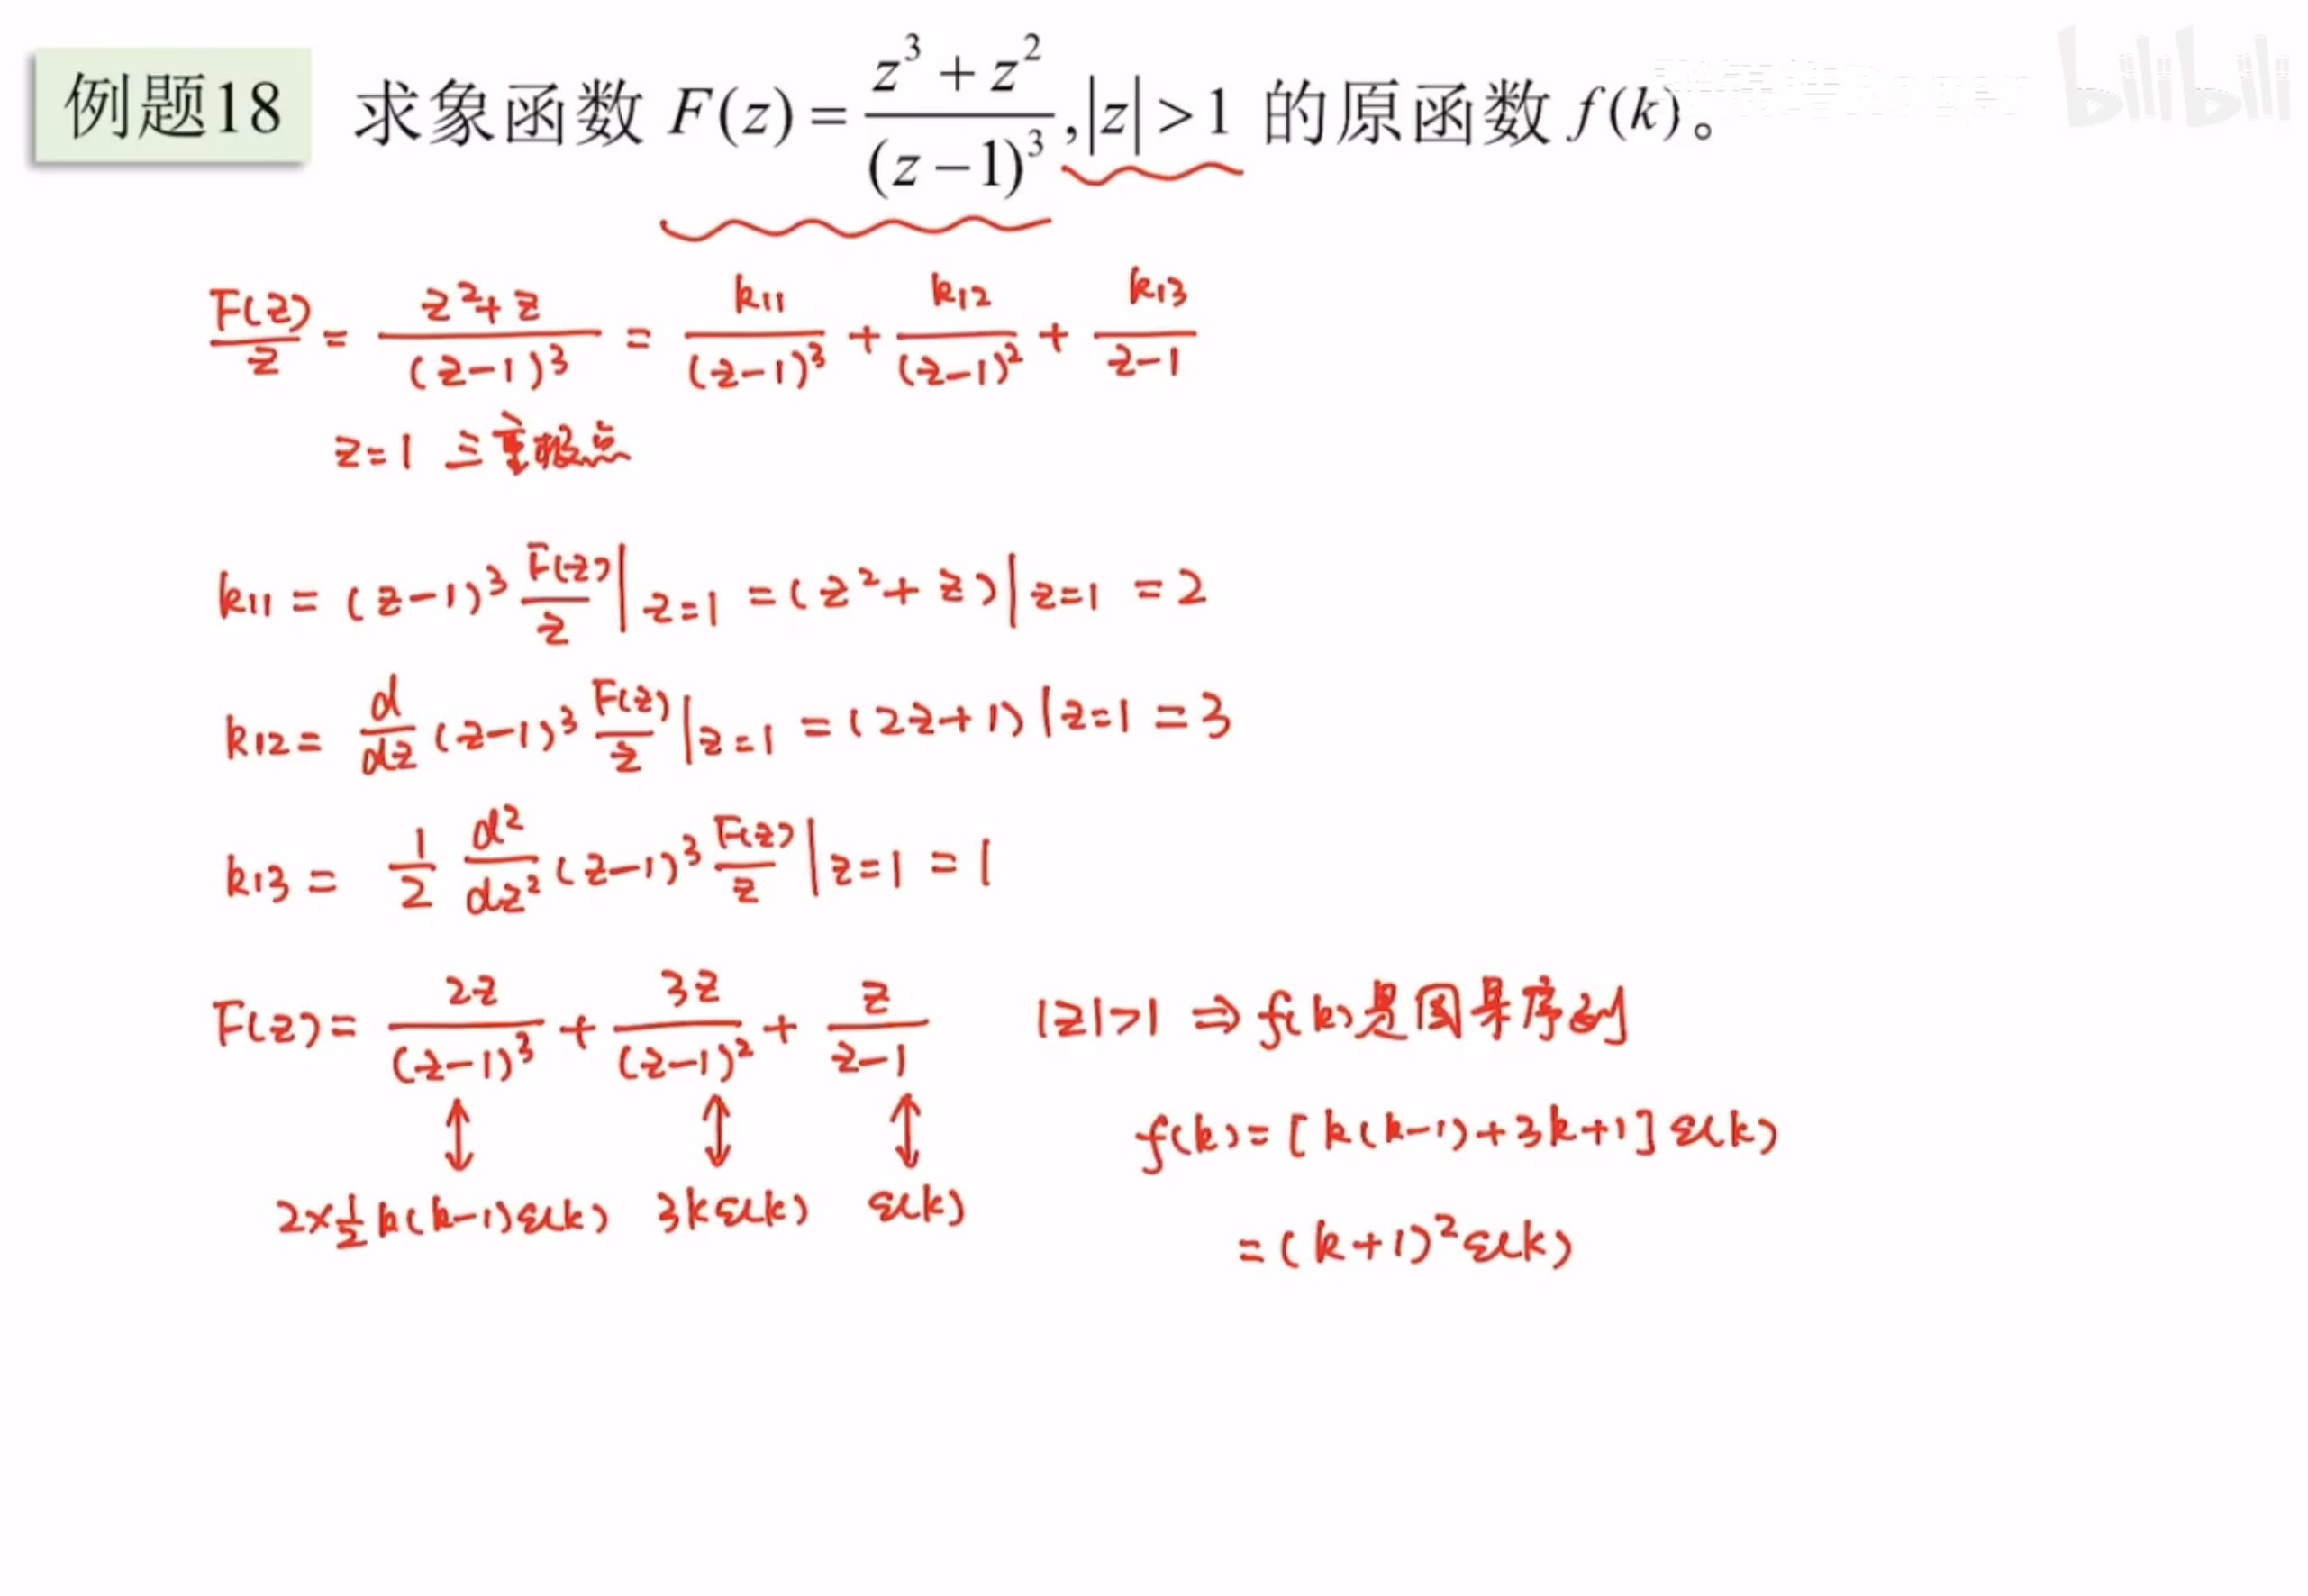 例题18 求象函数 F(z) = (z³ + z²)/(z−1)³, |z| > 1 的原函数 f(k)。
bilibili
F(z)/z = (z²+z)/(z−1)³ = k11/(z−1)³ + k12/(z−1)² + k13/(z−1)
z=1 三重极点
k11 = (z−1)³ F(z)/z | z=1 = (z²+z) | z=1 = 2
k12 = d/dz (z−1)³ F(z)/z | z=1 = (2z+1) | z=1 = 3
k13 = 1/2 d²/dz² (z−1)³ F(z)/z | z=1 = 1
F(z) = 2z/(z−1)³ + 3z/(z−1)² + z/(z−1) |z|>1 ⇒ f(k)是因果序列
↕ ↕ ↕
2×½k(k−1)ε(k) 3kε(k) ε(k)
f(k) = [k(k−1)+3k+1]ε(k)
= (k+1)²ε(k)